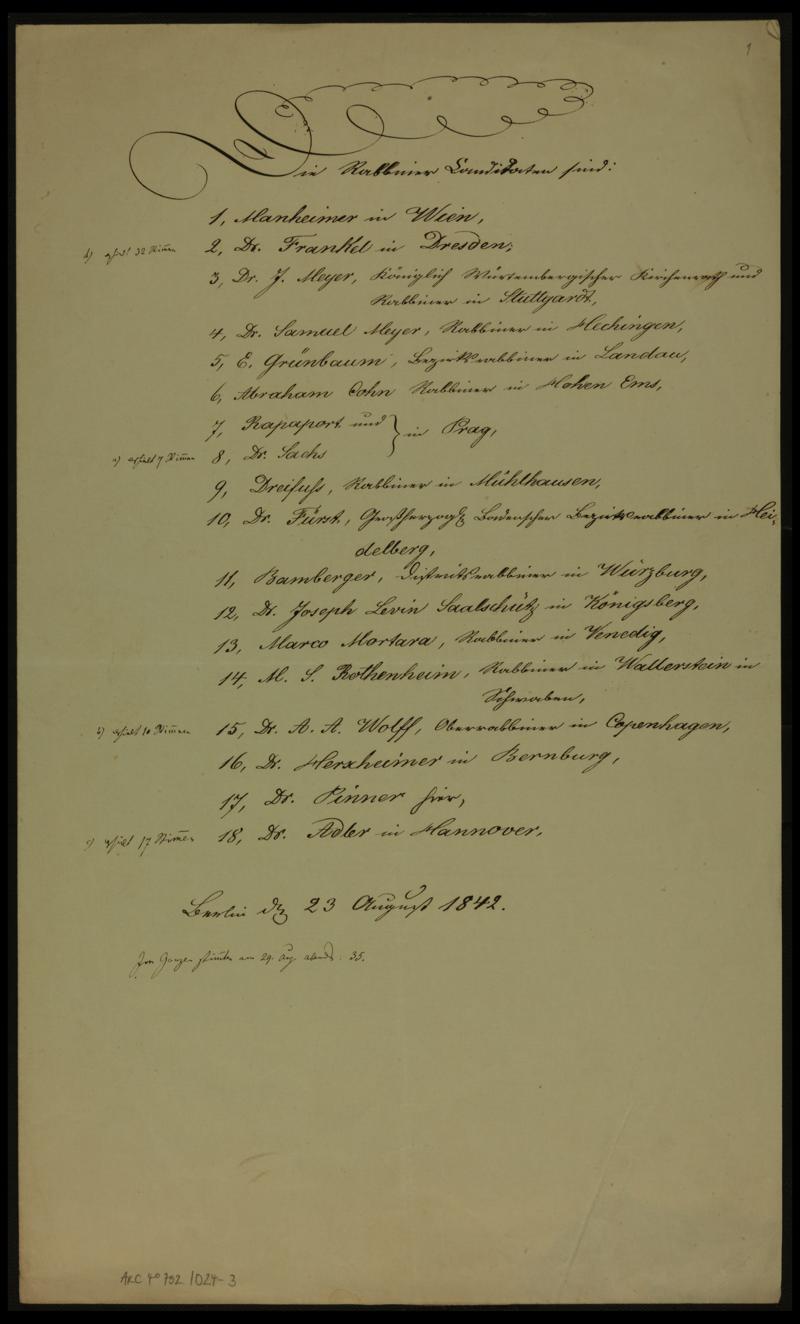 1
Die Rabbiner Candidaten sind:
1, Manheimer in Wien,
d) erhielt 32 Stim̄en 2, Dr. Frankel in Dresden,
3, Dr. J. Meyer, Königlich Würtembergischer Kirchenrath und
Rabbiner in Stuttgardt,
4, Dr. Samuel Meyer, Rabbiner in Hechingen,
5, E. Grünbaum, Bezirksrabbiner in Landau,
6, Abraham Cohn Rabbiner in Hohen Ems,
7, Rapaport und } in Prag,
a) erhielt 7 Stim̄en 8, Dr. Sachs
9, Dreifuss, Rabbiner in Mühlhausen,
10, Dr. Fürst, Großherzogl. Badenscher Bezirksrabbiner in Hei-
delberg,
11, Bamberger, Distriktsrabbiner in Würzburg,
12, Dr. Joseph Levin Saalschütz in Königsberg,
13, Marco Mortara, Rabbiner in Venedig,
14, M. S. Rothenheim, Rabbiner in Wallerstein in
Schwaben,
b) erhielt 10 Stim̄en 15, Dr. A. A. Wolff, Oberrabbiner in Copenhagen,
16, Dr. Herxheimer in Bernburg,
17, Dr. Pinner hier,
c) erhielt 17 Stim̄en 18, Dr. Adler in Hannover.
Berlin d. 23 August 1842.
Im Ganzen stim̄ten am 29. Aug. abends: 35.
ARC 4° 792 / D24-3